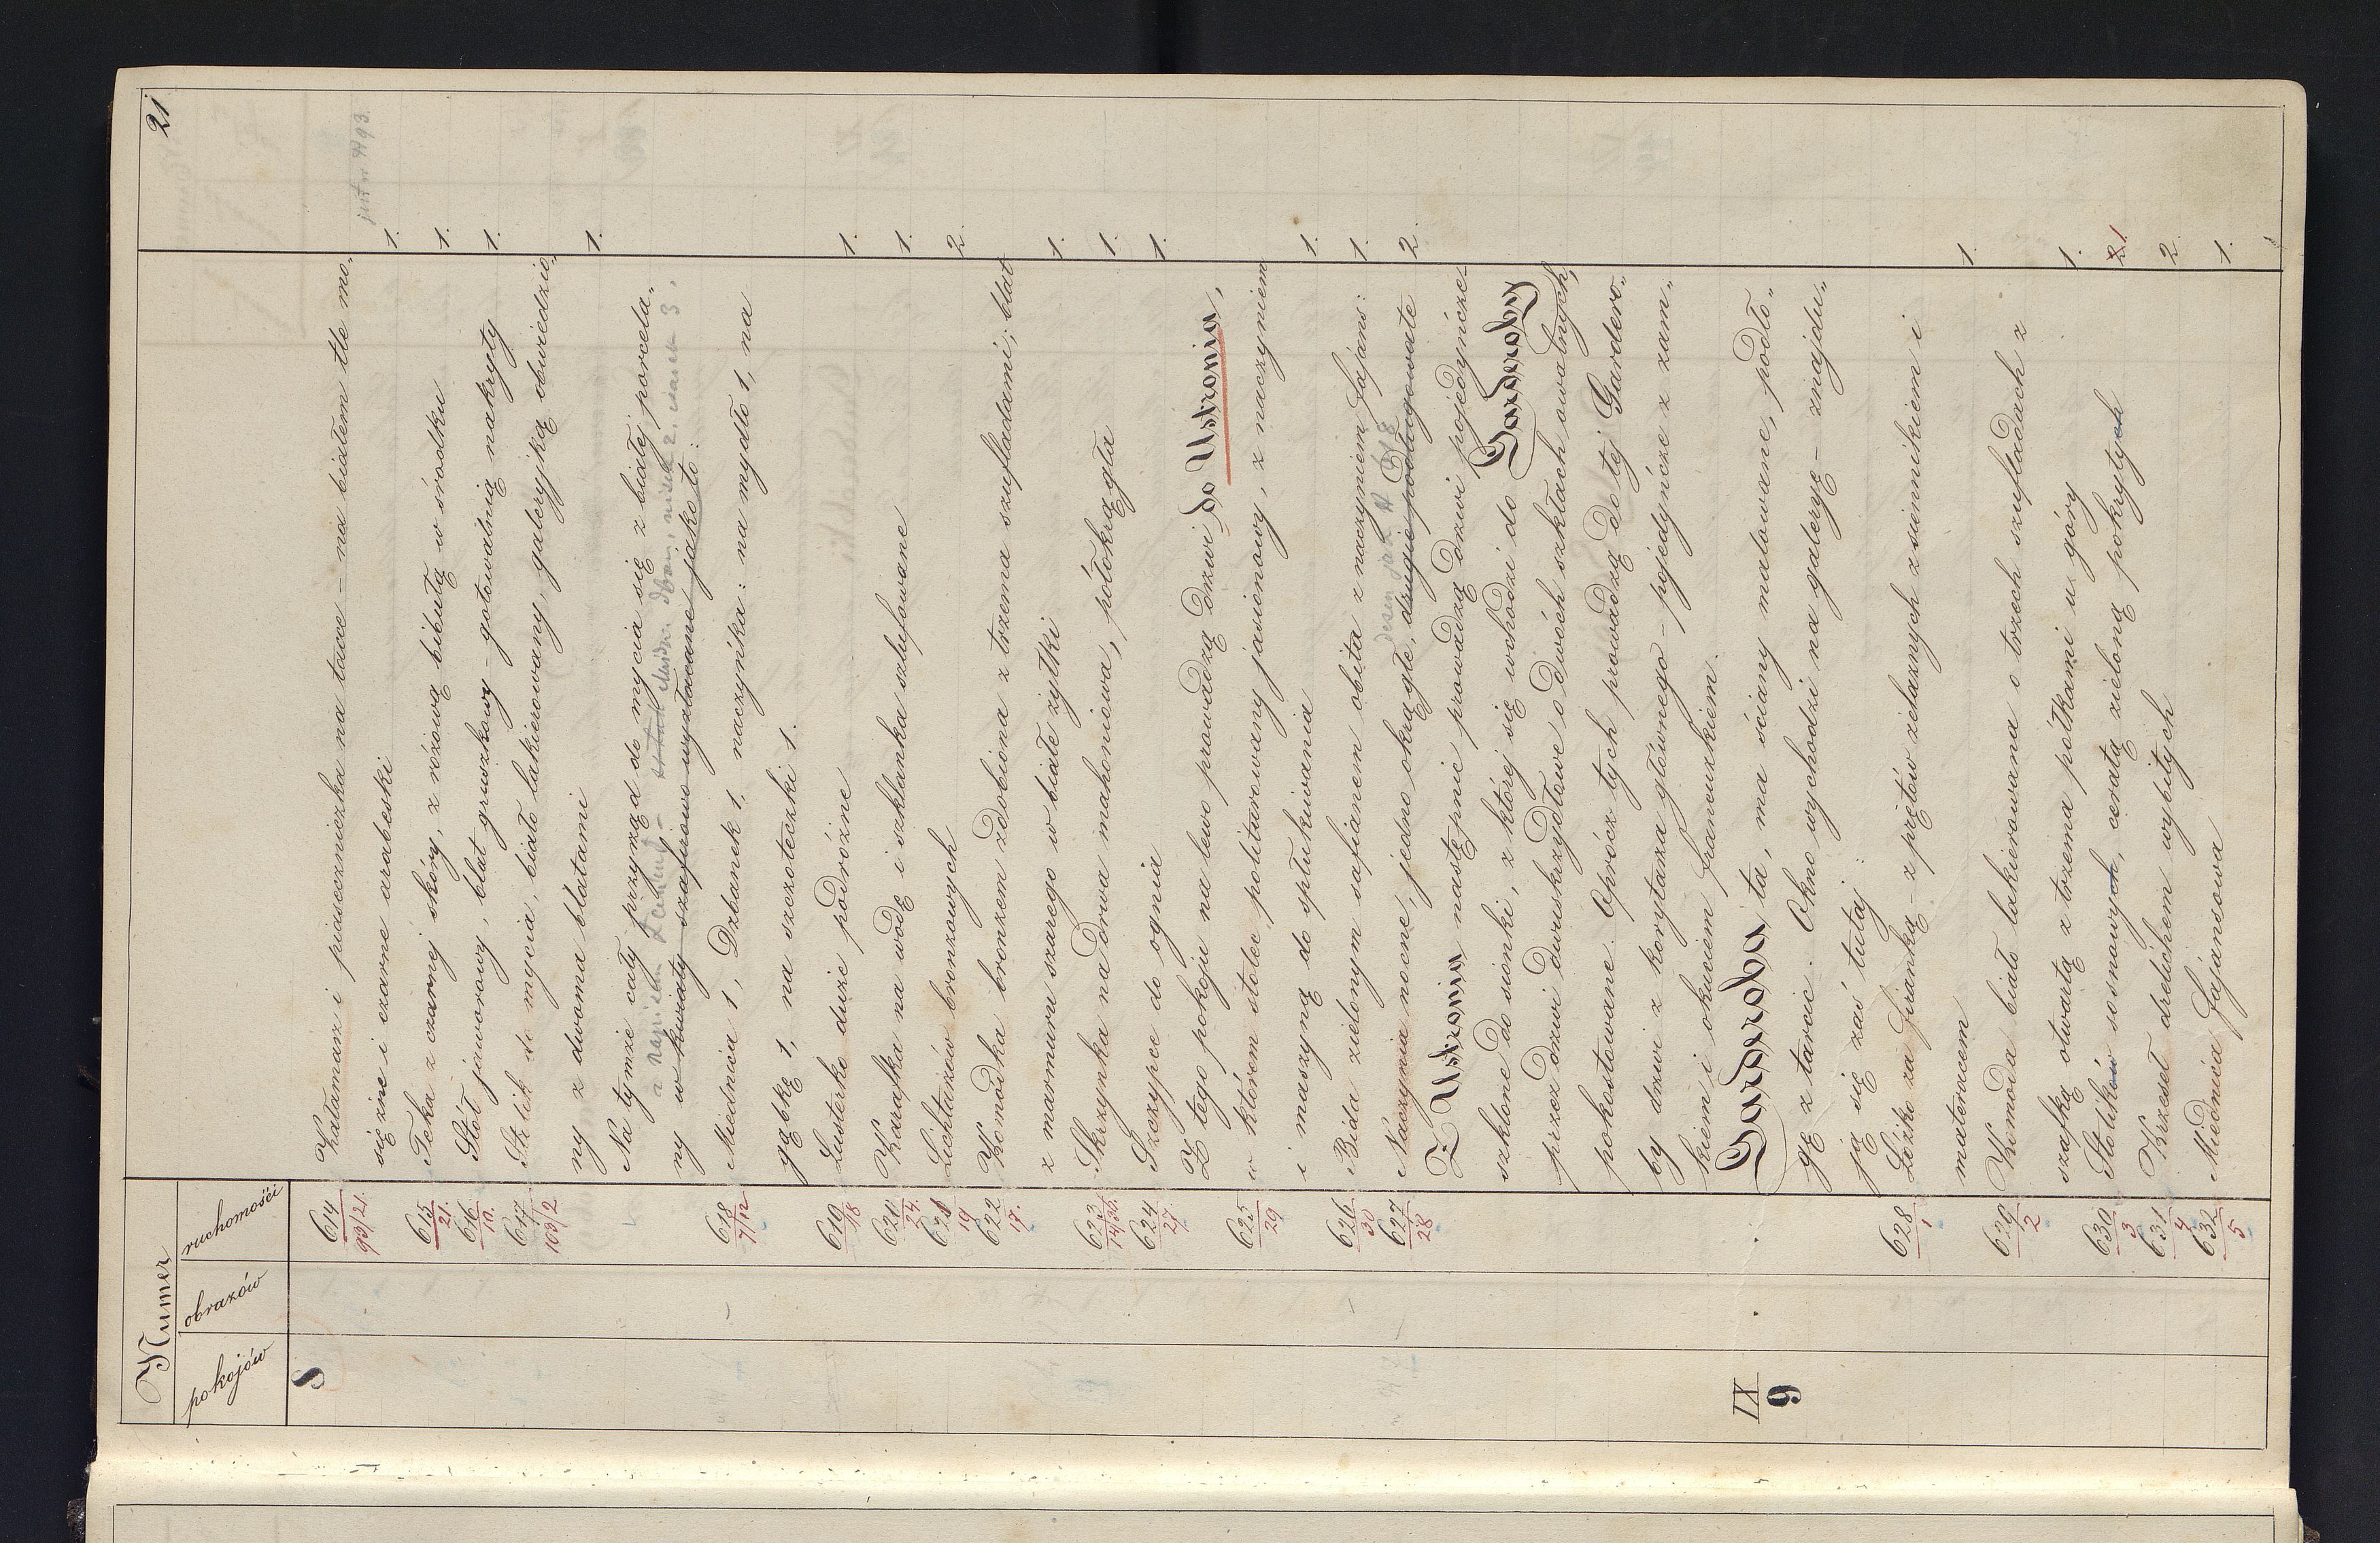 21
Numer
pokojów obrazów ruchomości
8
614 93/21 Kałamarz i piaseczniczka na tacce – na białem tle mo„
sięzne i czarne arabeski 1.
615 21. Teka z czarnej skóry, z różową bibułą w środku 1.
616 10. Stół jaworowy, blat gruszkowy – gotowalnią nakryty 1.
617 103/2 Stolik do mycia, biało lakierowany, galeryjką obwiedzio„
ny z dwoma blatami 1.
Na tymże cały przyrząd do mycia się z białej porcela„
ny w kwiaty szafirowo wyzłacane jako to:
618 7/12 Miednica 1, Dzbanek 1, naczyńka: na mydło 1, na
gąbkę 1, na szczoteczki 1.
619 18 Lusterko duże podróżne 1.
620 24. Karafka na wodę i szklanka szlifowane 1.
621 19 Lichtarzów bronzowych 2.
622 17. Komódka bronzem zdobiona z trzema szufladami; blat
z marmuru szarego w białe żyłki 1.
623 Skrzynka na drwa mahoniowa, półokrągła 1.
624 27. Szczypce do ognia 1.
Z tego pokoju na lewo prowadzą drzwi do Ustronia,
625 29 w którem stolec politurowany jasienowy, z naczyniem
i maszyną do spłukiwania 1.
626 30 Bida zielonym safianem obita z naczyniem fajans: 1.
627 28 Naczynia nocne, jedno okrągłe, drugie podługowate 2.
Z Ustronia następnie prowadzą drzwi pojedyńcze
szklone do sionki, z której się wchodzi do Garderoby
przez drzwi dwuskrzydłowe o dwóch szkłach owalnych,
pokostowane. Oprócz tych prowadzą do tej Gardero„
by drzwi z korytarza głównego – pojedyńcze z zam„
kiem i okuciem francuzkiem.
IX
9
Garderoba ta, ma ściany malowane, podło„
gę z tarcic. Okno wychodzi na galeryę – znajdu„
ją się zaś tutaj:
628 1 Łóżko za firanką – z prętów żelaznych z siennikiem i
materacem 1.
629 2 Komoda biało lakierowana o trzech szufladach z
szafką otwartą z trzema półkami u góry 1.
630 3 Stolików sosnowych, ceratą zieloną pokrytych 21
631 4 Krzeseł drelichem wybitych 2
632 5 Miednica fajansowa 1.